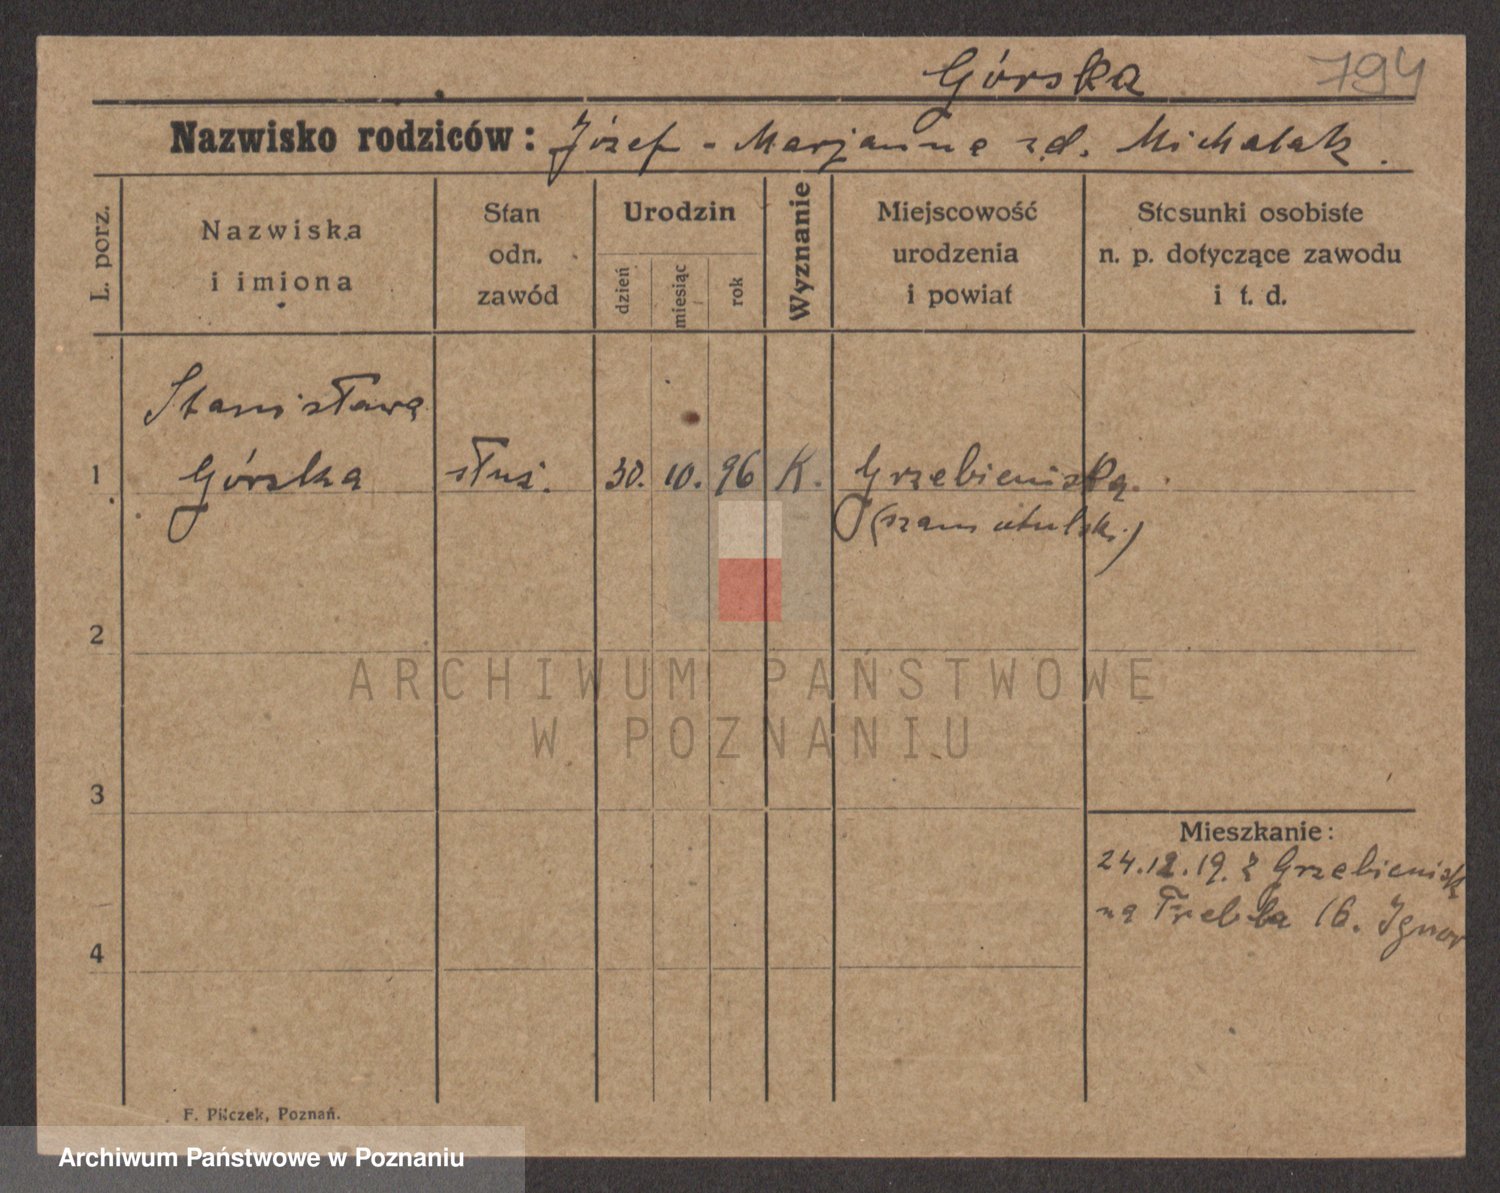 Górska
794
Nazwisko rodziców: Józef - Marjanna zd. Michalak.
L. porz.
Nazwiska
i imiona
Stan
odn.
zawód
Urodzin
dzień
miesiąc
rok
Wyznanie
Miejscowość
urodzenia
i powiat
Stosunki osobiste
n. p. dotyczące zawodu
i t. d.
Stanisława
1 Górska służ. 30. 10. 96 K. Grzebieniska.
(szamotulski)
2
ARCHIWUM PAŃSTWOWE
W POZNANIU
3
Mieszkanie:
24.12.19. z Grzebienisk
na 16.
4
F. Pilczek, Poznań.
Archiwum Państwowe w Poznaniu